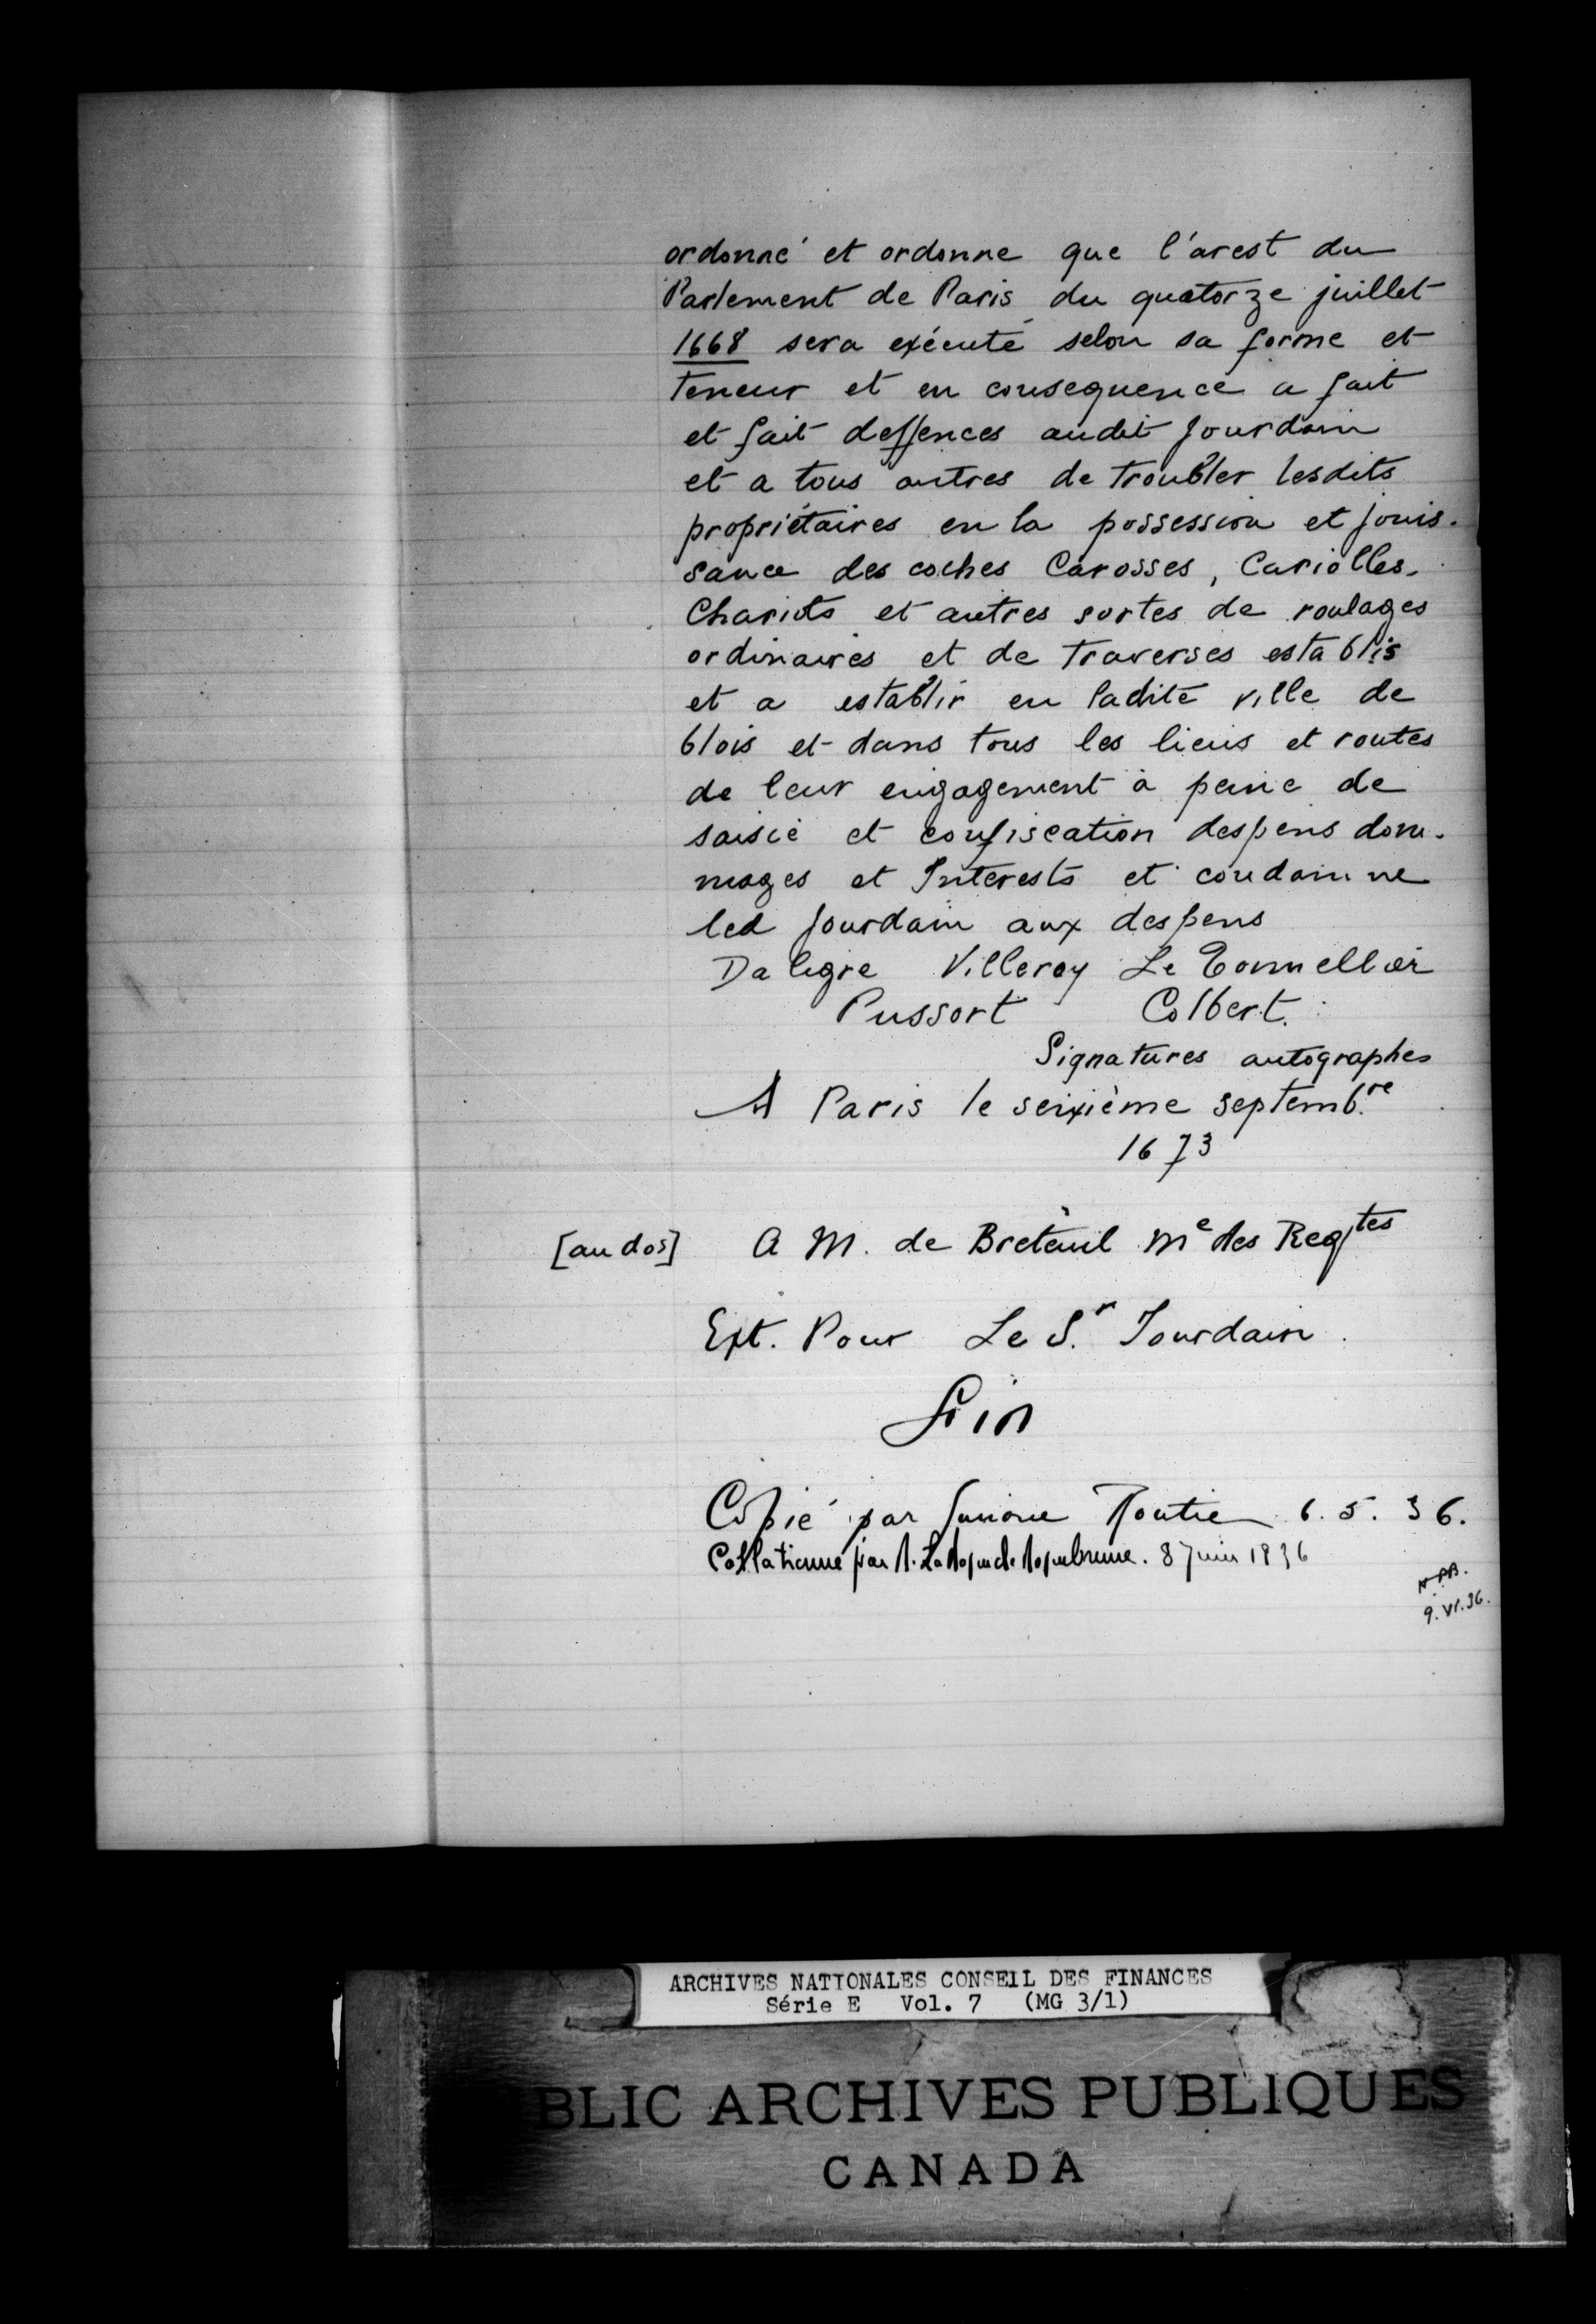 ordonné et ordonne que l'arest du
Parlement de Paris du quatorze juillet
1668 sera exécuté selon sa forme et
teneur et en consequence a fait
et fait deffences audit Jourdain
et a tous autres de troubler lesdits
propriétaires en la possession et jouis-
sance des coches Carosses, Cariolles,
Chariots et autres sortes de roulages
ordinaires et de traverses establis
et a establir en ladite ville de
blois et dans tous les lieux et routes
de leur engagement à peine de
saisie et confiscation despens dom-
mages et Interests et condamne
led Jourdain aux despens
Daligre Villeroy Le Tonnellier
Pussort Colbert.
Signatures autographes
A Paris le seixième septemb.re
1673
[au dos] A M. de Breteuil Me des Reqtes
Ext. Pour Le S.r Jourdain.
Fin
Copié par Simone Routier 6. 5. 36.
Collationné par 8 Juin 1936
9.VI.36.
ARCHIVES NATIONALES CONSEIL DES FINANCES
Série E Vol. 7 (MG 3/1)
BLIC ARCHIVES PUBLIQUES
CANADA